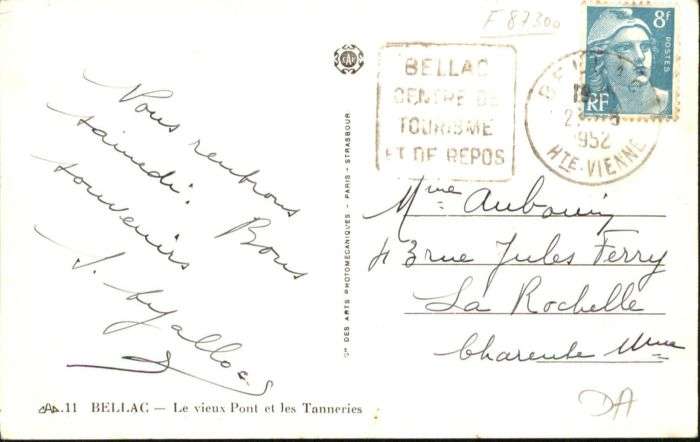 F 87300
8F
POSTES
RF
BELLAC
CENTRE DE
TOURISME
ET DE REPOS
BELLAC
1952
HTE-VIENNE
Vous rentrons
samedi. Bons
souvenirs
Mme Aubouin
43 rue Jules Ferry
La Rochelle
Charente Mme
Cie DES ARTS PHOTOMECANIQUES - PARIS - STRASBOURG
11 BELLAC — Le vieux Pont et les Tanneries
DA